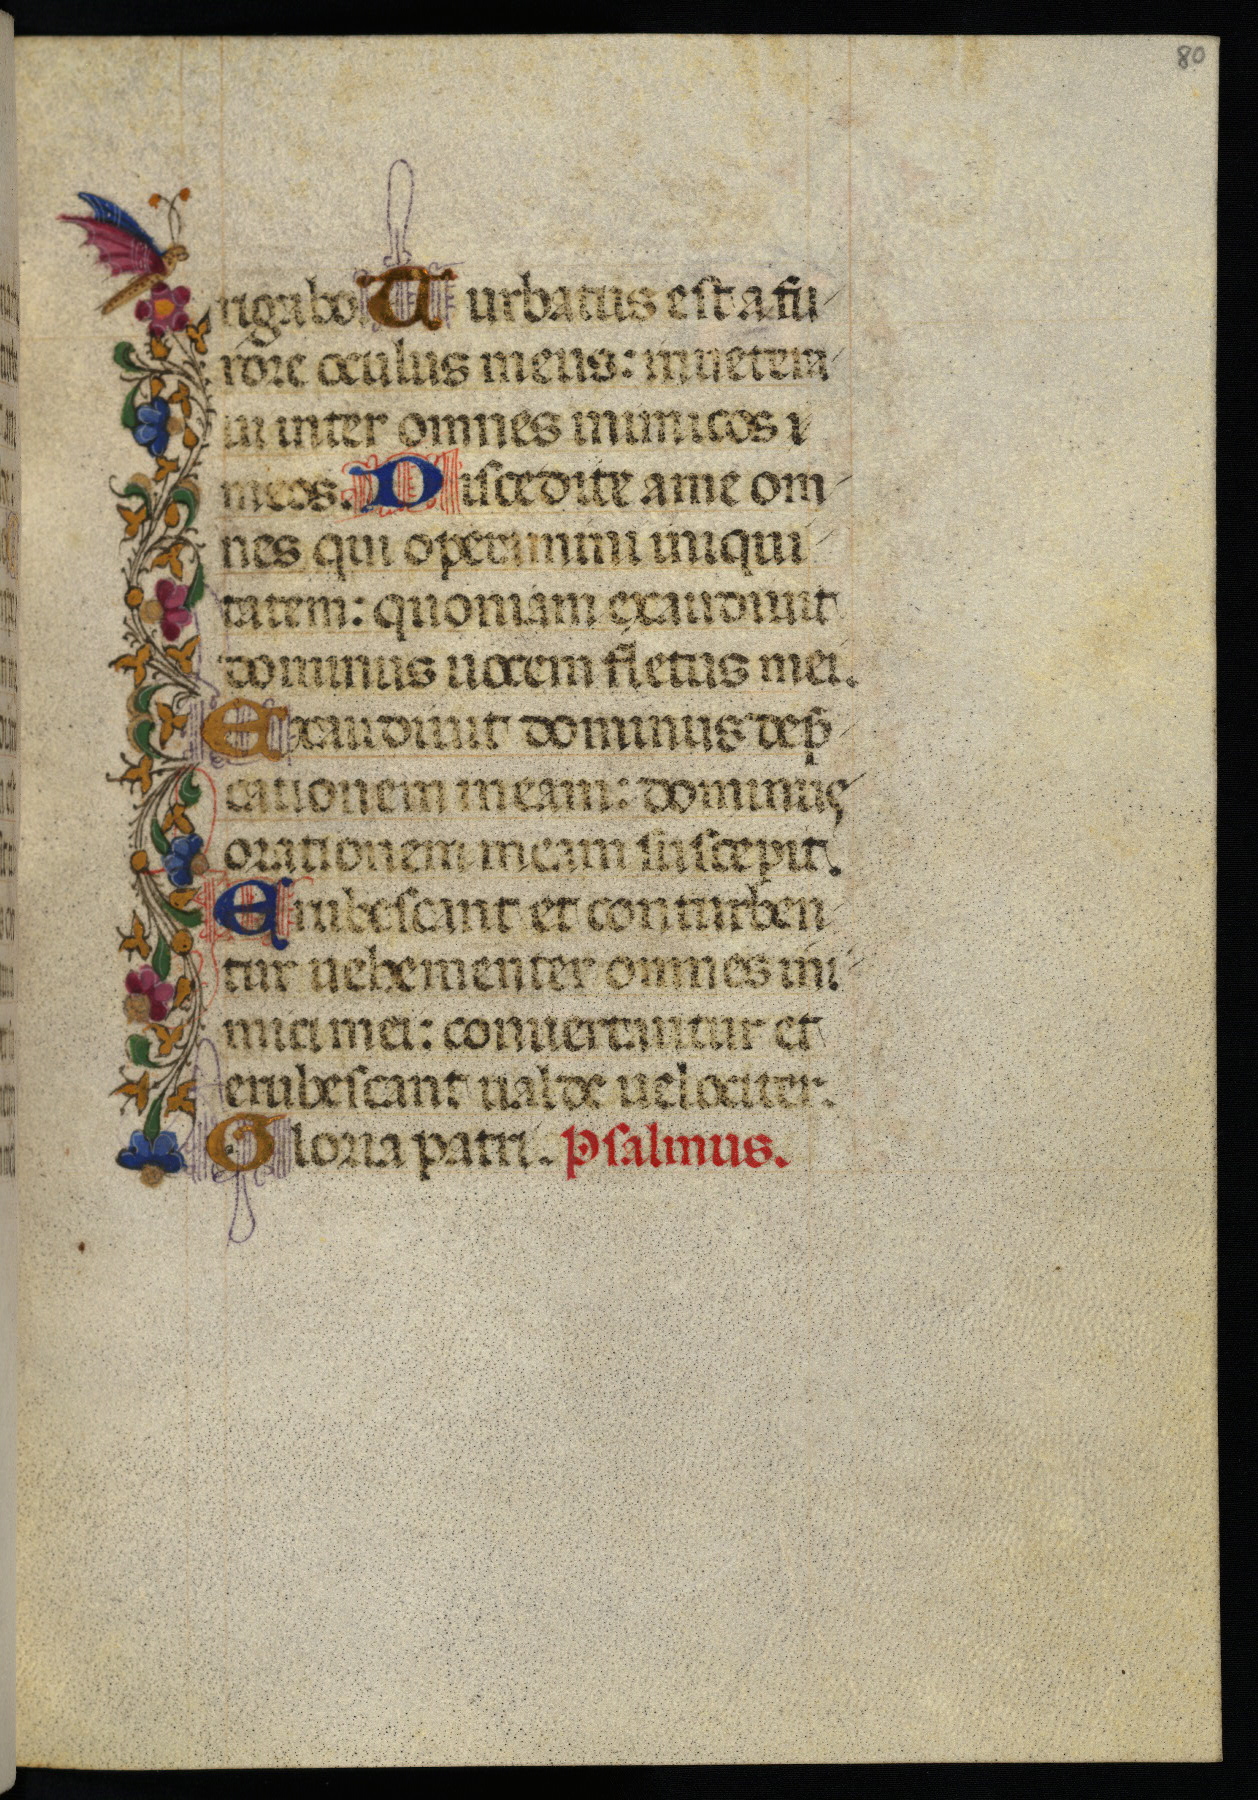 80
rigabo. Turbatus est a fu
rore oculus meus: inuetera
ui inter omnes inimicos
meos. Discedite a me om
nes qui operamini iniqui
tatem: quoniam exaudiuit
dominus uocem fletus mei.
Exaudiuit dominus dep̱
cationem meam: dominus
orationem meam suscepit.
Erubescant et conturben
tur uehementer omnes ini
mici mei: conuertantur et
erubescant ualde uelociter.
Gloria patri. Psalmus.